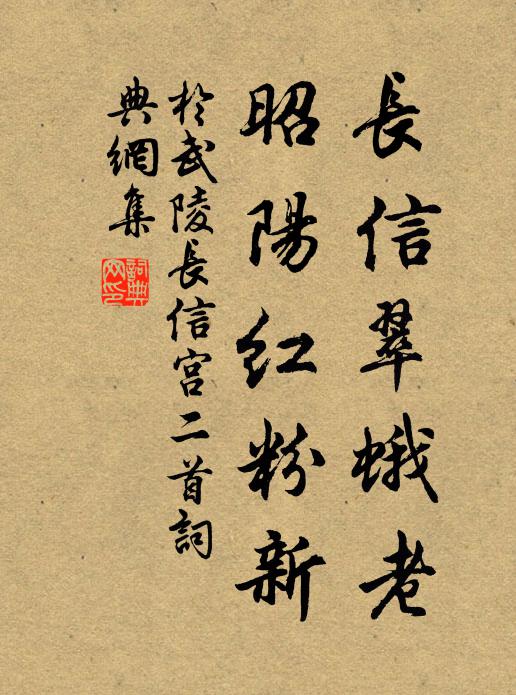 長信翠蛾老
昭陽紅粉新
於武陵長信宮二首詞
典網集
詞典
网印